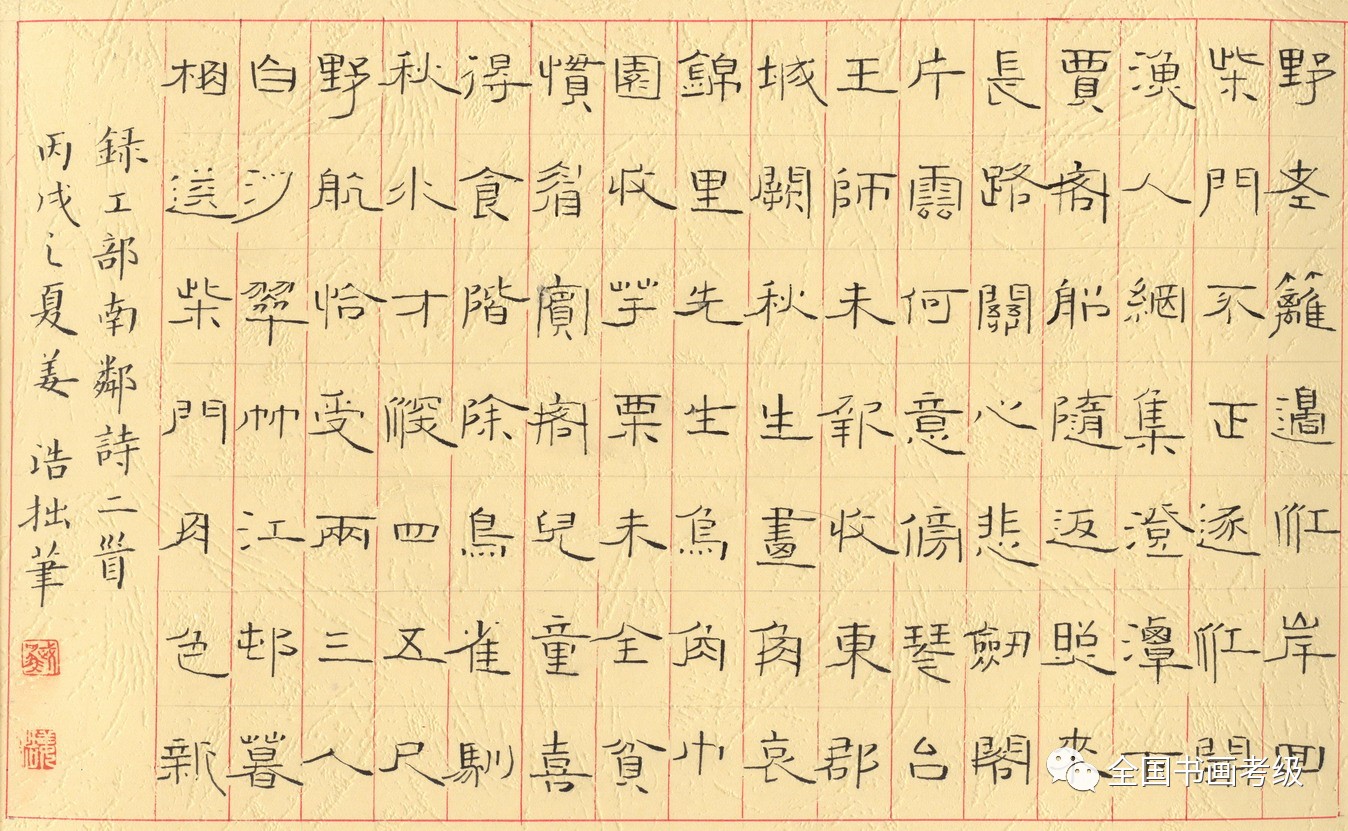 野老籬邊江岸回
柴門不正逐江開
漁人網集澄潭下
賈客船隨返照來
長路關心悲劍閣
片雲何意傍琴台
王師未報收東郡
城闕秋生畫角哀
錦里先生烏角巾
園收芋栗未全貧
慣看賓客兒童喜
得食階除鳥雀馴
秋水才深四五尺
野航恰受兩三人
白沙翠竹江邨暮
相送柴門月色新
録工部南鄰詩二首
丙戌之夏姜浩拙筆
全国书画考级